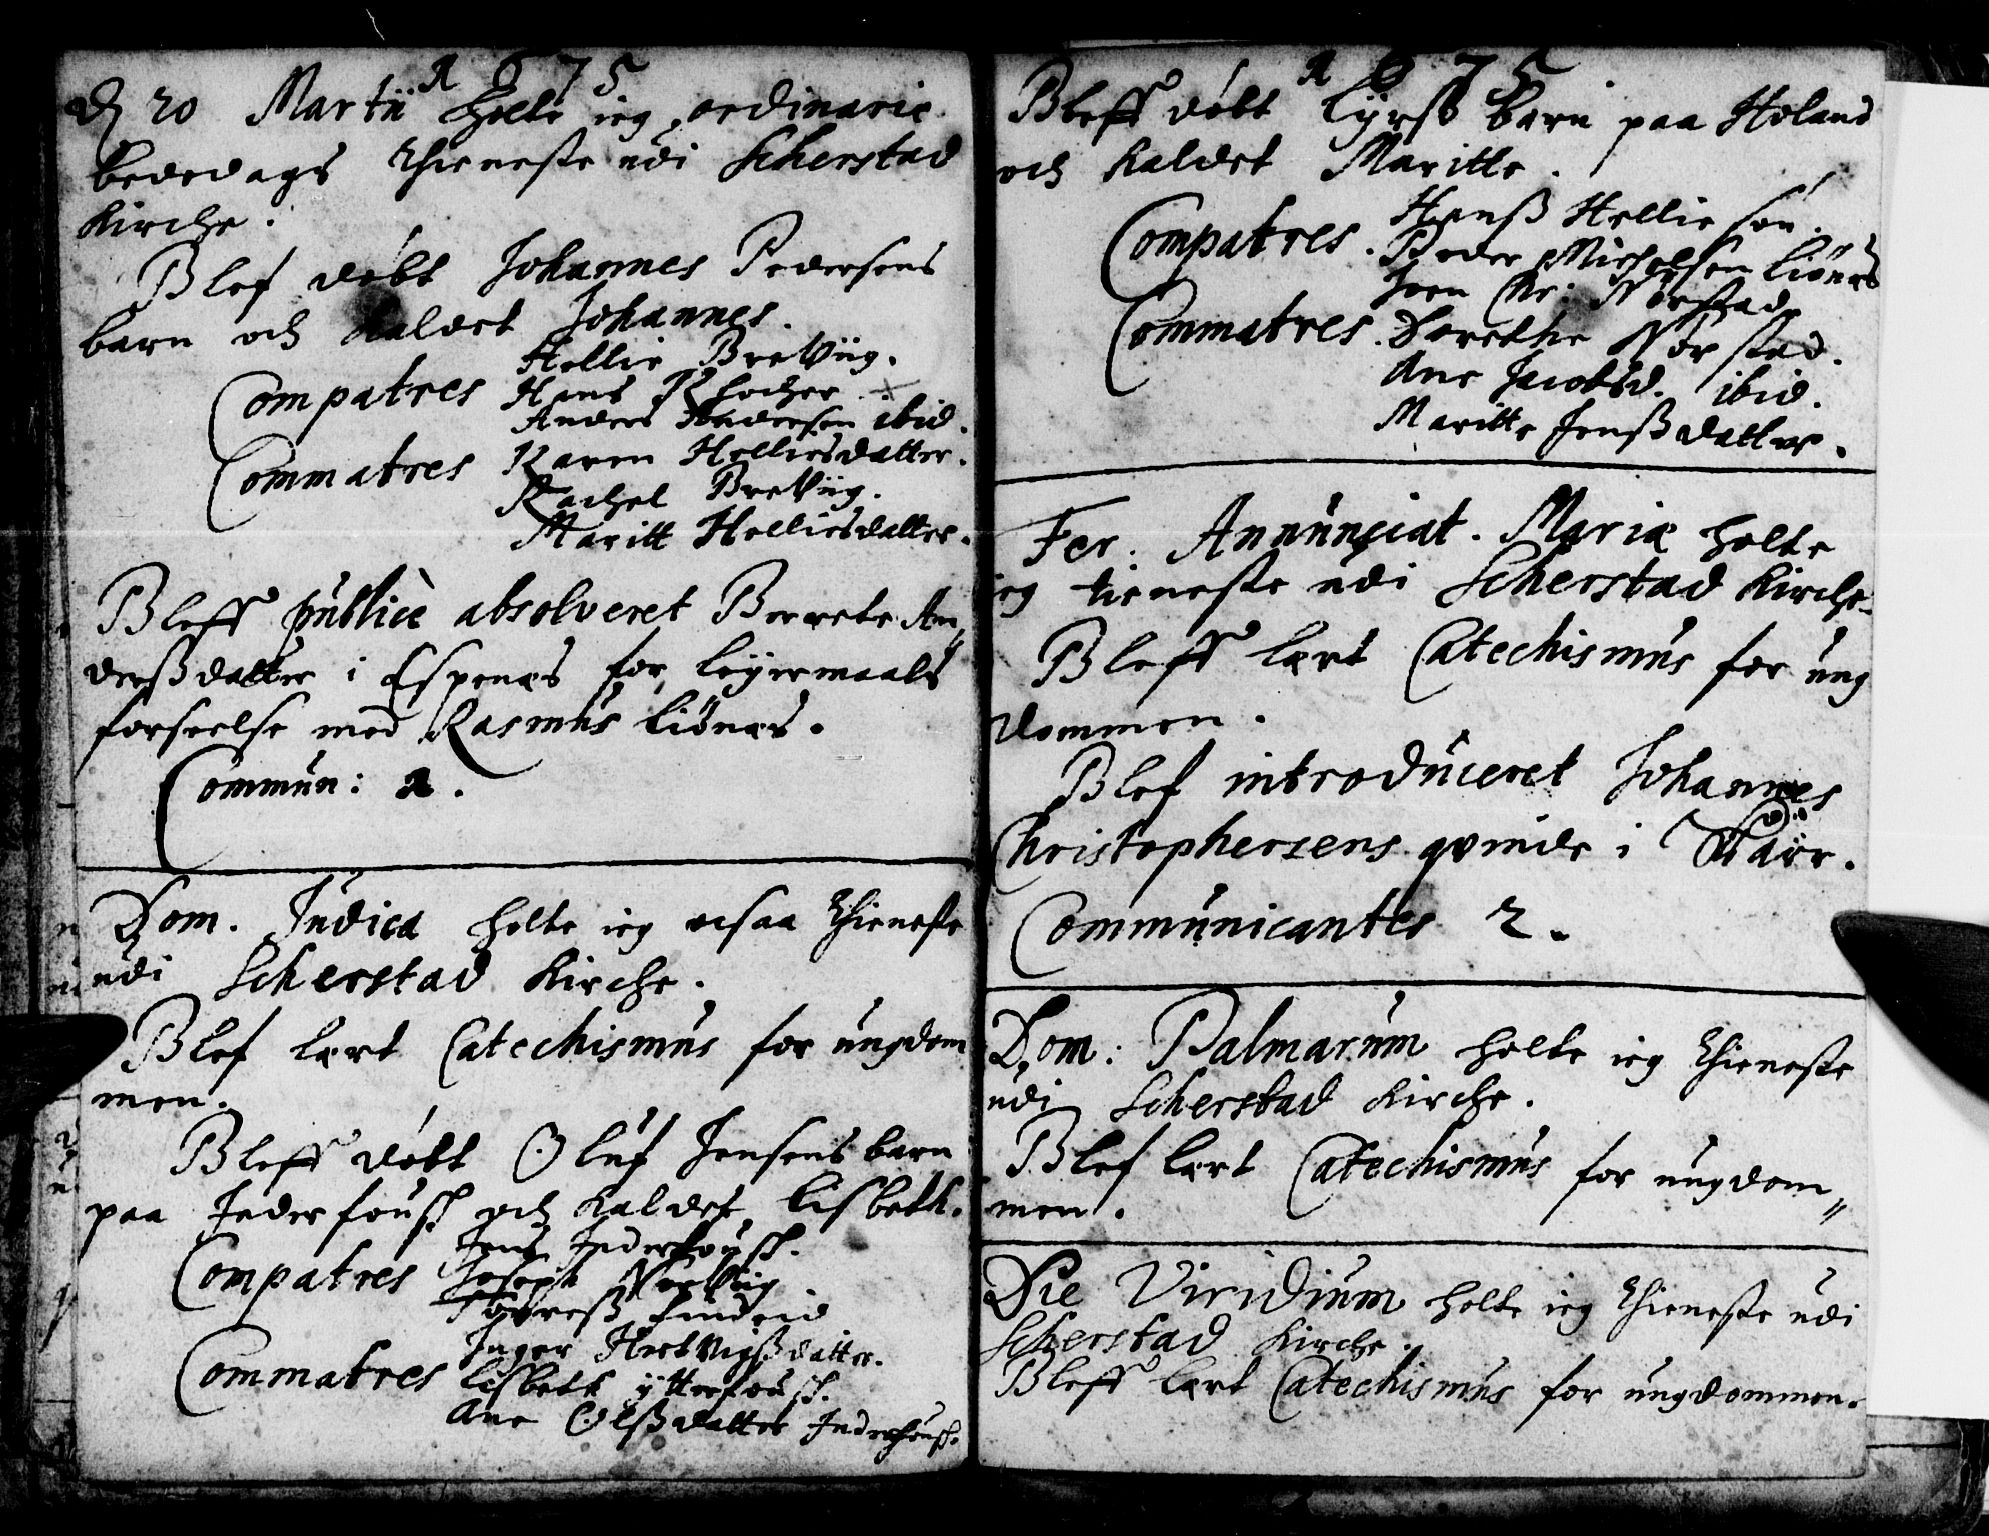 1675
D 20 Martii holte ieg ordinarie
bededags thieneste udi Scherstad
Kirche.
Blef døbt Johannes Pedersens
barn och kaldet Johannes.
Compatres Hellie BreViig.
Hans
Anders Andersen ibid.
Commatres Karen Helliesdatter.
Rachel BreViig.
Maritt Helliesdatter.
Bleff publicè absolveret Berrete An„
derßdatter i Espenæs for leyermaals
forseelse med Rasmus Liönæs.
Commun: 2.
Dom. Judica holte ieg ocsaa thieneste
udi Scherstad Kirche.
Blef lært Catechismus for ungdom
men.
Bleff døbt Oluf Jensens barn
paa Inderfousch och kaldet Lisbeth.
Compatres Jens Inderfousch.
Joseph
Lindeid
Commatres Inger Hertvigßdatter.
Lisbeth ytterfousch.
Ane Olßdatter Inderfousch.
1675
Bleff døbt barn paa Holand
och kaldet Maritte.
Compatres. Hanß Hellie søn.
Peder Michelsen Liönæs
Joen Chr: Nørstad.
Commatres. Dorethe Nørstad.
Ane Jacobsd. ibid.
Maritte Jenßdatter.
Fer. Annunciat. Mariæ holte
ieg tieneste udi Scherstad Kirche.
Bleff lært Catechismus for ung
dommen.
Blef introduceret Johannes
Christophersens qvinde i
Communicantes 2.
Dom: Palmarum holte ieg thieneste
udi Scherstad Kirche.
Blef lært Catechismus for ungdom„
men.
Die Viridium holte ieg thieneste udi
Scherstad Kirche.
Bleff lært Catechismus for ungdommen.